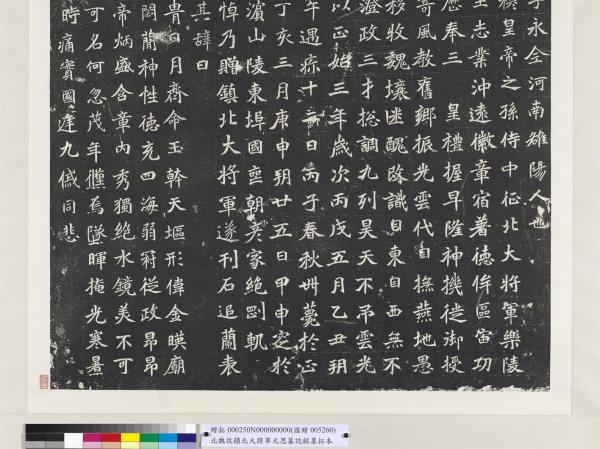 永全河南雒陽人也
皇帝之孫侍中征北大將軍樂陵
志業沖遠徽章宿著德侔區宙功
歷奉三 皇禮握早隆神機徙御授
寄風教舊鄉振光雲代自撫燕地愚
移牧魏壤醜改識自東自西無不
澄政三才摠調九列昊天不弔雲光
以正始三年歲次丙戌五月乙丑朔
午遇疹十二日丙子春秋卌薨於正
丁亥三月庚申朔廿五日甲申窆於
山陵東埠國喪朝彥家絕剛軌
悼乃贈鎮北大將軍遂刊石追蘭表
其辭曰
胄日月齊命玉幹天堰形偉金暎廟
蘭神性德充四海弱冠從政昂昂
帝炳盛含章內秀獨絕水鏡美不可
可名何忽茂年焉墜暉掩光寒暑
時痛實國違九儀同悲
贈拓 000250N000000000(國贈 005260)
北魏故鎮北大將軍元思墓誌銘墨拓本